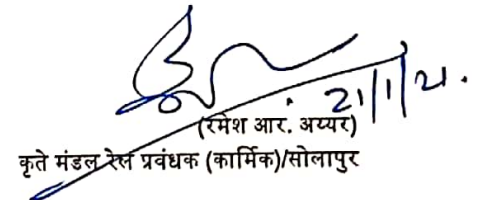 21/1/21.
(रमेश आर. अय्यर)
कृते मंडल रेल प्रवंधक (कार्मिक)/सोलापुर